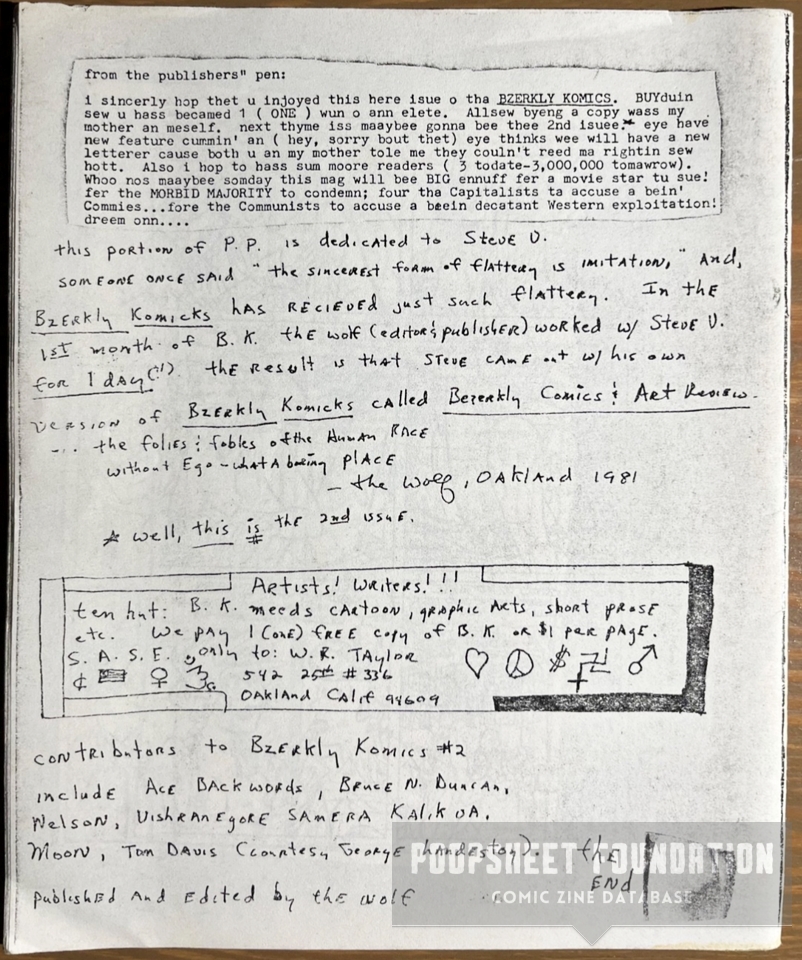 from the publishers" pen:
i sincerly hop thet u injoyed this here isue o tha BZERKLY KOMICS. BUYduin
sew u hass becamed 1 ( ONE ) wun o ann elete. Allsew byeng a copy wass my
mother an meself. next thyme iss maaybee gonna bee thee 2nd isuee.* eye have
new feature cummin' an ( hey, sorry bout thet) eye thinks wee will have a new
letterer cause both u an my mother tole me they couln't reed ma rightin sew
hott. Also i hop to hass sum moore readers ( 3 todate-3,000,000 tomawrow).
Whoo nos maaybee somday this mag will bee BIG ennuff fer a movie star tu sue!
fer the MORBID MAJORITY to condemn; four tha Capitalists ta accuse a bein'
Commies...fore the Communists to accuse a beein decatant Western exploitation!
dreem onn....
this portion of P.P. is dedicated to Steve V.
someone once said "the sincerest form of flattery is imitation," And,
Bzerkly Komicks has recieved just such flattery. In the
1st month of B.K. the wolf (editor & publisher) worked w/ Steve V.
for 1 day(!!) the result is that Steve came out w/ his own
version of Bzerkly Komicks called Bezerkly Comics & Art Review.
... the folies & fables of the Human Race
without Ego - what a boring place
- the wolf, Oakland 1981
* well, this is the 2nd issue.
Artists! Writers!!!
ten hut: B.K. needs cartoon, graphic arts, short prose
etc. We pay 1 (one) free copy of B.K. or $1 per page.
S.A.S.E. only to: W.R. Taylor
¢ ♀ 542 25th # 336 ♡ ☮ $ ♂
Oakland Calif 94609
contributors to Bzerkly Komics #2
include Ace Backwords, Bruce N. Duncan,
Nelson, Vishranegore Samera Kalik UA,
Moon, Tom Davis (courtesy George Handeston). the
End
published and Edited by the wolf
POOPSHEET FOUNDATION
COMIC ZINE DATABASE